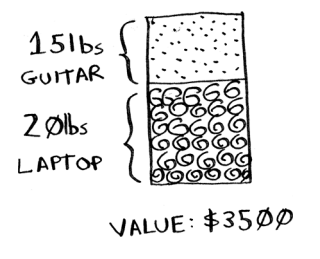 15lbs
GUITAR
20lbs
LAPTOP
VALUE: $3500